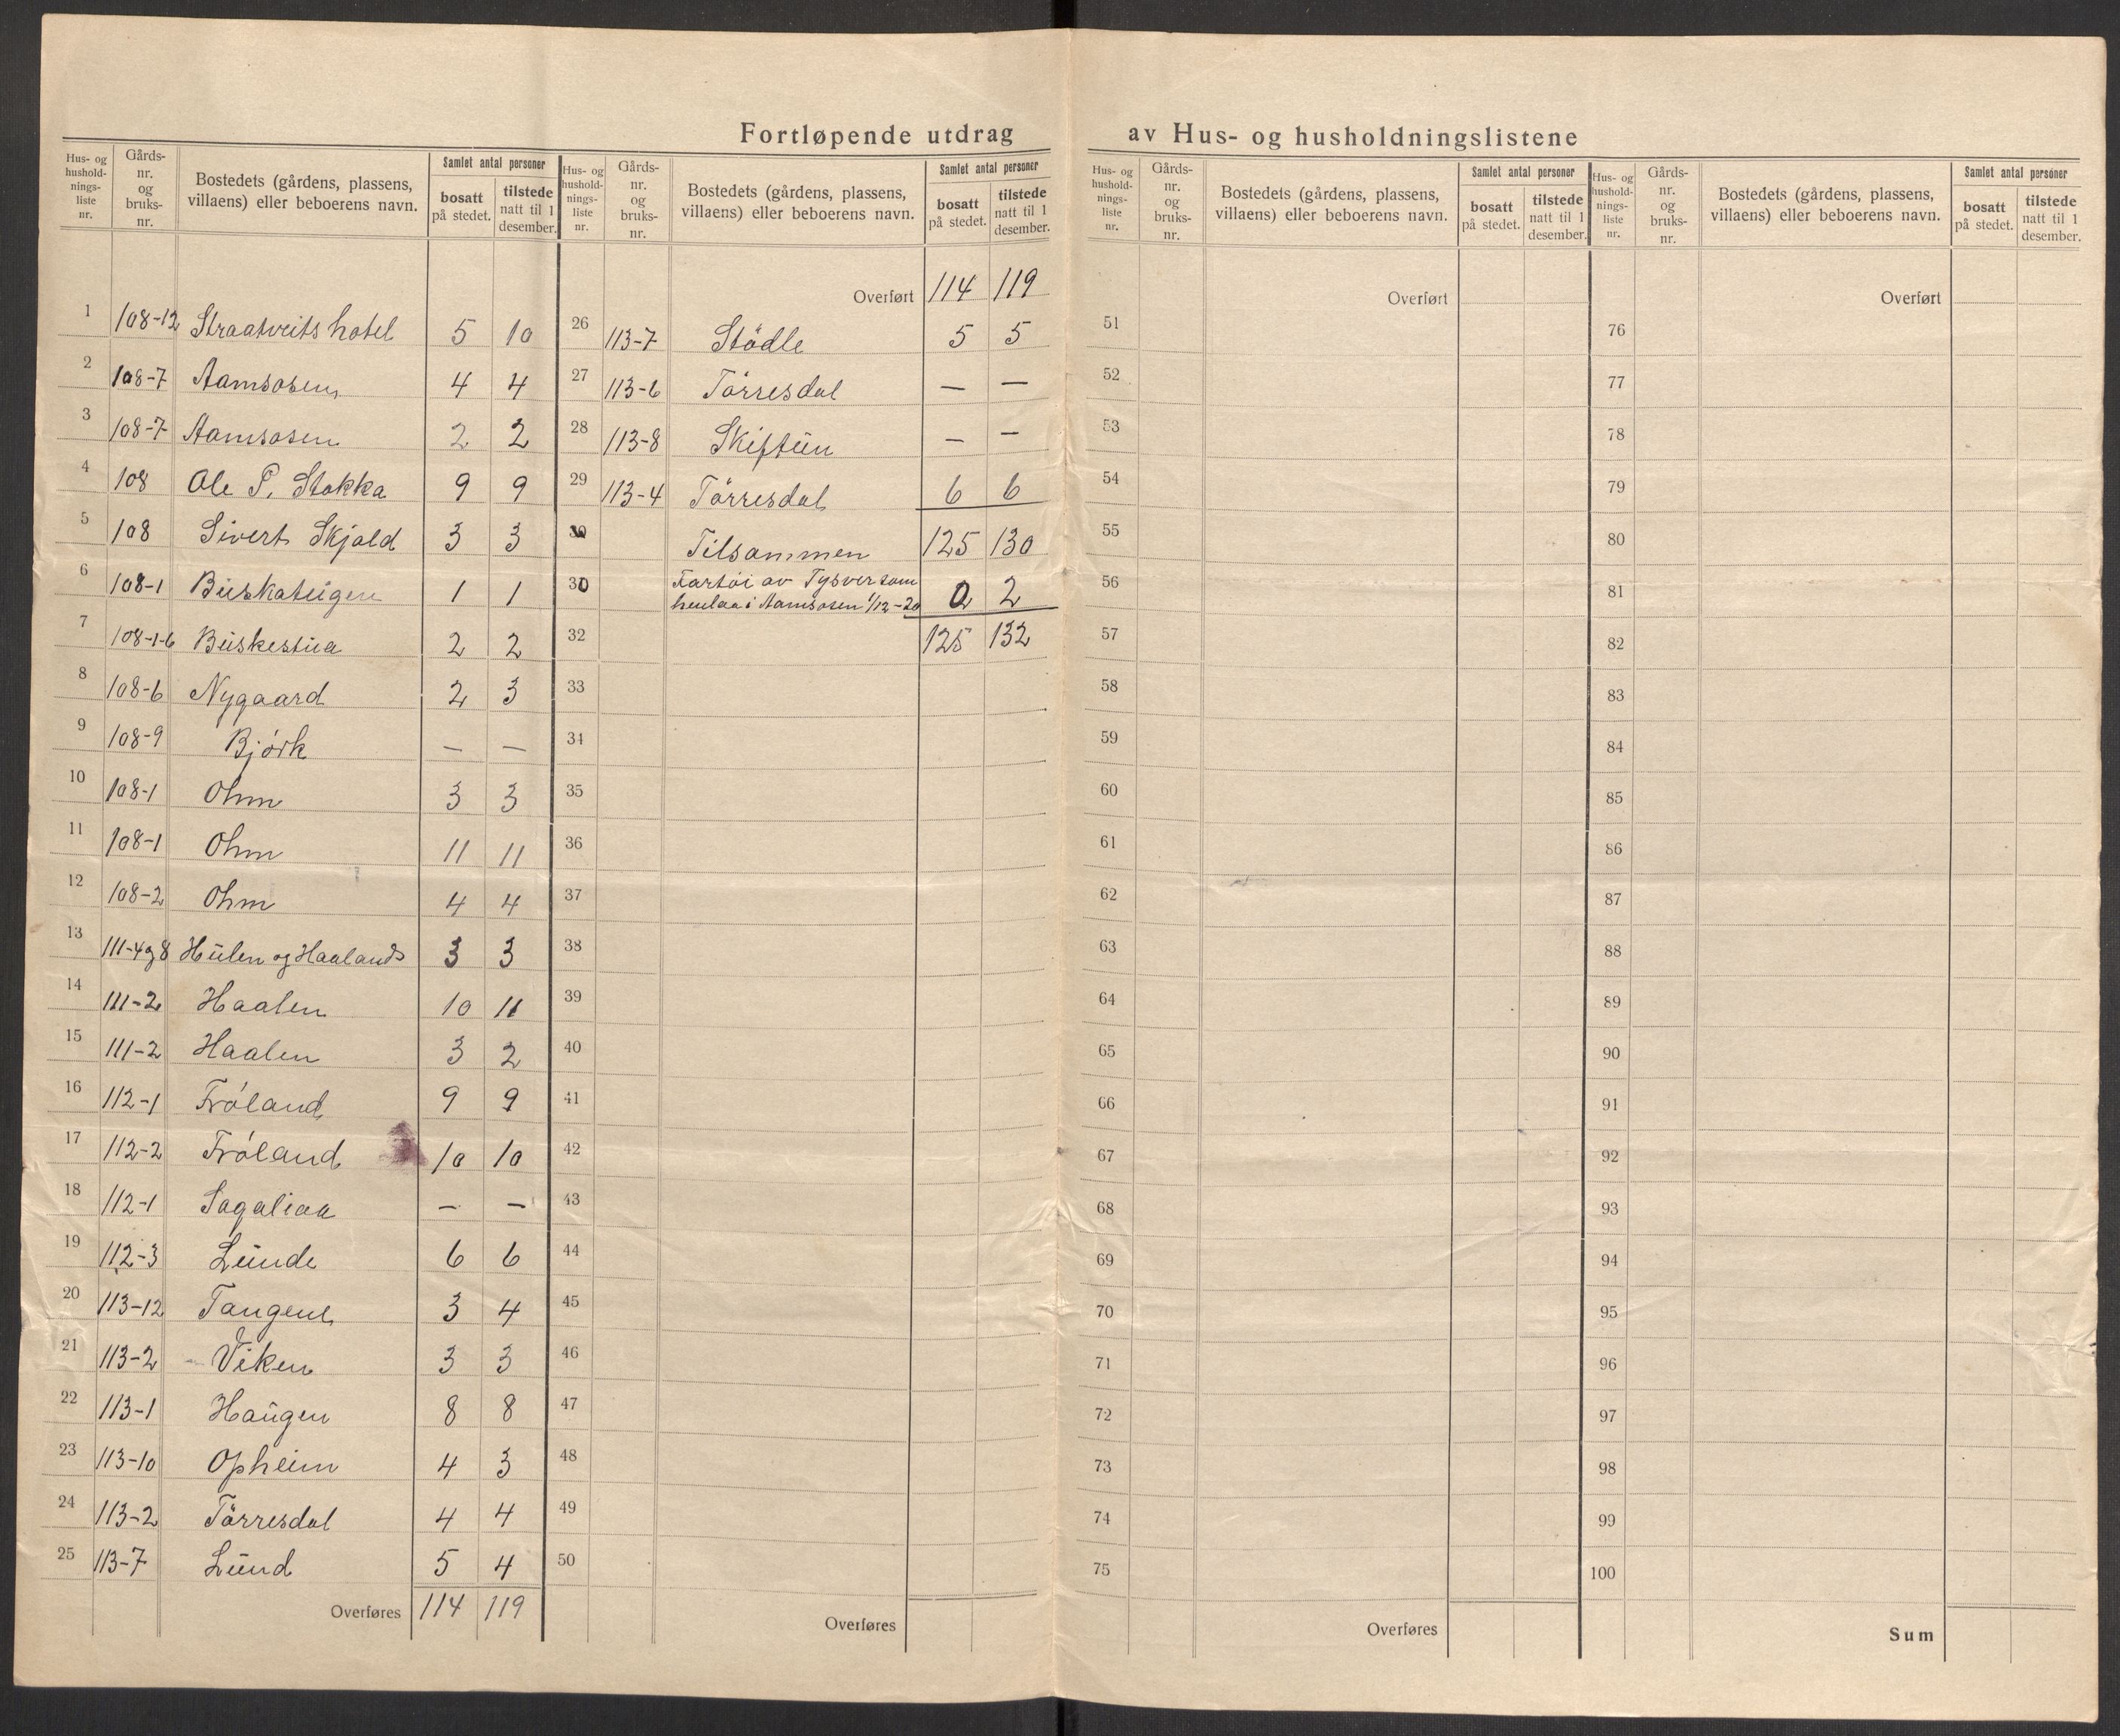 Fortløpende utdrag av Hus- og husholdningslistene
Hus- og husholdningsliste nr. | Gårdsnr. og bruksnr. | Bostedets (gårdens, plassens, villaens) eller beboerens navn. | Samlet antal personer: bosatt på stedet. | tilstede natt til 1 desember.
1 108-12 Straatveits hotel 5 10
2 108-7 Aamsosen 4 4
3 108-7 Aamsosen 2 2
4 108 Ole P. Stokka 9 9
5 108 Sivert Skjold 3 3
6 108-1 Buskateigen 1 1
7 108-1-6 Buskestua 2 2
8 108-6 Nygaard 2 3
9 108-9 Bjørk — —
10 108-1 Ohm 3 3
11 108-1 Ohm 11 11
12 108-2 Ohm 4 4
13 111-4og8 Hulen og Haalands 3 3
14 111-2 Haalen 10 11
15 111-2 Haalen 3 2
16 112-1 Frøland 9 9
17 112-2 Frøland 10 10
18 112-1 Sagaliaa — —
19 112-3 Lunde 6 6
20 113-12 Tangene 3 4
21 113-2 Viken 3 3
22 113-1 Haugen 8 8
23 113-10 Opheim 4 3
24 113-2 Tørresdal 4 4
25 113-7 Lund 5 4
Overføres 114 119
Hus- og husholdningsliste nr. | Gårdsnr. og bruksnr. | Bostedets (gårdens, plassens, villaens) eller beboerens navn. | Samlet antal personer: bosatt på stedet. | tilstede natt til 1 desember.
Overført 114 119
26 113-7 Stødle 5 5
27 113-6 Tørresdal — —
28 113-8 Skiftun — —
29 113-4 Tørresdal 6 6
Tilsammen 125 130
30 Fartøi av Tysver som 0 2
henlaa i Aamsosen 1/12-20
32 125 132
33
34
35
36
37
38
39
40
41
42
43
44
45
46
47
48
49
50
Overføres
Hus- og husholdningsliste nr. | Gårdsnr. og bruksnr. | Bostedets (gårdens, plassens, villaens) eller beboerens navn. | Samlet antal personer: bosatt på stedet. | tilstede natt til 1 desember.
Overført
51
52
53
54
55
56
57
58
59
60
61
62
63
64
65
66
67
68
69
70
71
72
73
74
75
Overføres
Hus- og husholdningsliste nr. | Gårdsnr. og bruksnr. | Bostedets (gårdens, plassens, villaens) eller beboerens navn. | Samlet antal personer: bosatt på stedet. | tilstede natt til 1 desember.
Overført
76
77
78
79
80
81
82
83
84
85
86
87
88
89
90
91
92
93
94
95
96
97
98
99
100
Sum